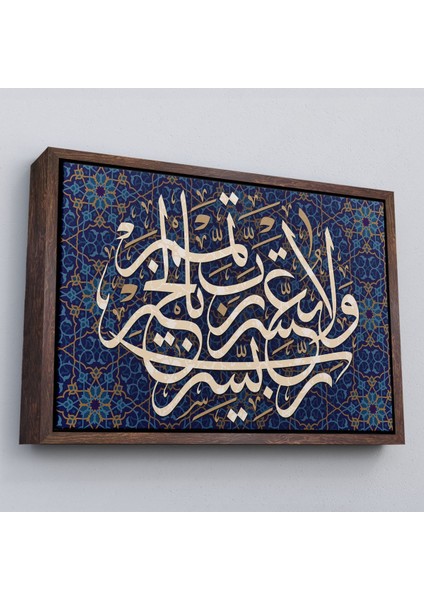 رب يسر
ولا تعسر
رب تمم
بالخير